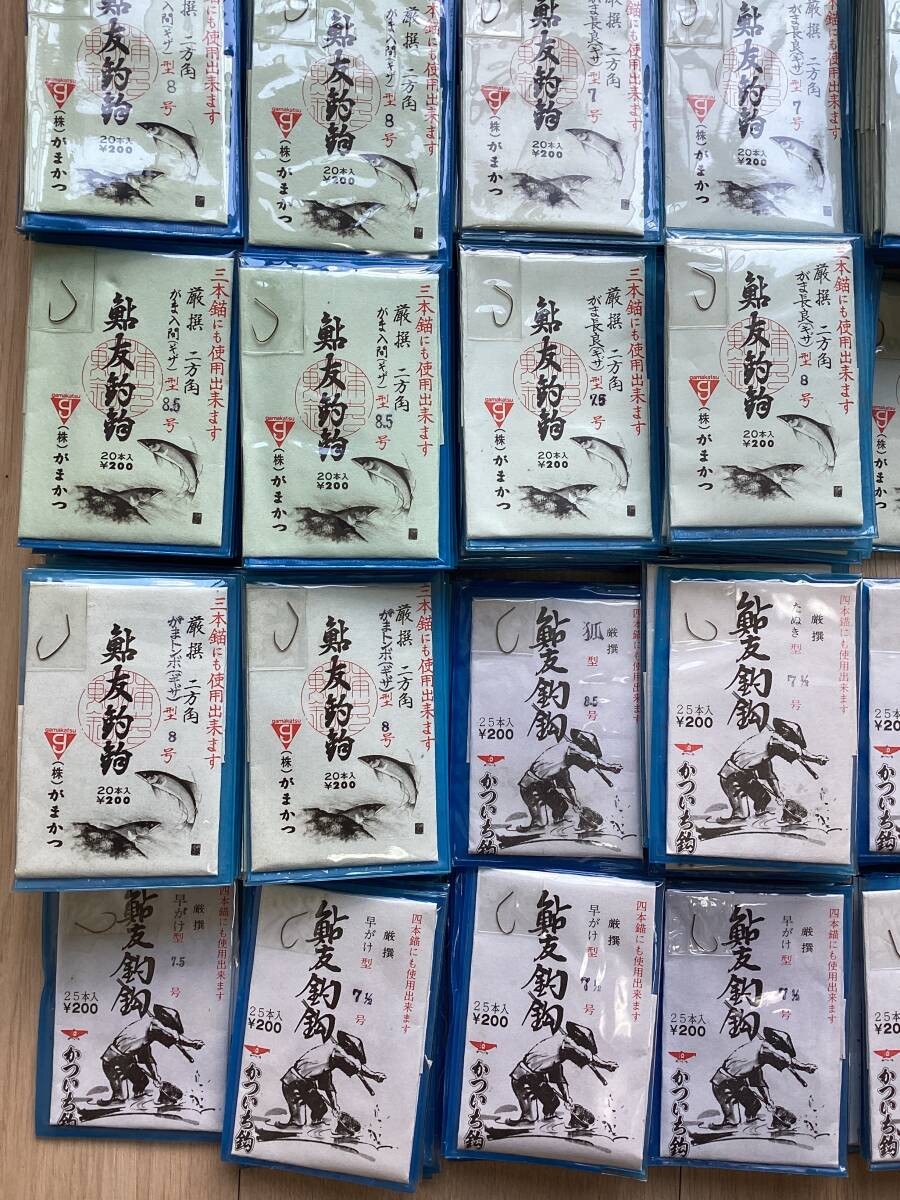 三本錨にも使用出来ます
厳撰 二方角
型 8 号
鮎友釣鈎
gamakatsu
20本入
¥200
(株)がまかつ
三本錨にも使用出来ます
厳撰 二方角
がま入間(ギザ)型 8 号
鮎友釣鈎
gamakatsu
20本入
¥200
(株)がまかつ
三本錨にも使用出来ます
二方角
がま長良(ギザ)型 7 号
鮎友釣鈎
gamakatsu
20本入
¥200
(株)がまかつ
三本錨にも使用出来ます
二方角
がま長良(ギザ)型 7 号
鮎友釣鈎
gamakatsu
20本入
¥200
(株)がまかつ
三本錨にも使用出来ます
厳撰 二方角
がま入間(ギザ)型 8.5 号
鮎友釣鈎
gamakatsu
20本入
¥200
(株)がまかつ
三本錨にも使用出来ます
厳撰 二方角
がま入間(ギザ)型 8.5 号
鮎友釣鈎
gamakatsu
20本入
¥200
(株)がまかつ
三本錨にも使用出来ます
厳撰 二方角
がま長良(ギザ)型 7.5 号
鮎友釣鈎
gamakatsu
20本入
¥200
(株)がまかつ
三本錨にも使用出来ます
厳撰 二方角
がま長良(ギザ)型 8 号
鮎友釣鈎
gamakatsu
20本入
¥200
(株)がまかつ
三本錨にも使用出来ます
厳撰 二方角
がまトンボ(ギザ)型 8 号
鮎友釣鈎
gamakatsu
20本入
¥200
(株)がまかつ
三本錨にも使用出来ます
厳撰 二方角
がまトンボ(ギザ)型 8 号
鮎友釣鈎
gamakatsu
20本入
¥200
(株)がまかつ
四本錨にも使用出来ます
厳撰
狐型 8.5 号
鮎友釣鈎
25本入
¥200
かついち鈎
四本錨にも使用出来ます
厳撰
たぬき型 7½ 号
鮎友釣鈎
25本入
¥200
かついち鈎
四本錨にも使用出来ます
厳撰
早がけ型 7.5 号
鮎友釣鈎
25本入
¥200
かついち鈎
四本錨にも使用出来ます
厳撰
早がけ型 7½ 号
鮎友釣鈎
25本入
¥200
かついち鈎
四本錨にも使用出来ます
厳撰
早がけ型 7½ 号
鮎友釣鈎
25本入
¥200
かついち鈎
四本錨にも使用出来ます
厳撰
早がけ型 7½ 号
鮎友釣鈎
25本入
¥200
かついち鈎